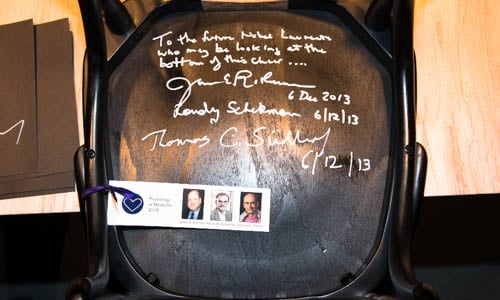 To the future Nobel Laureats
who may be looking at the
bottom of this chair ....
James E. Rothman
6 Dec 2013
Randy Schekman 6/12/13
Thomas C. Südhof
6/12/13
Physiology
or Medicine
2013